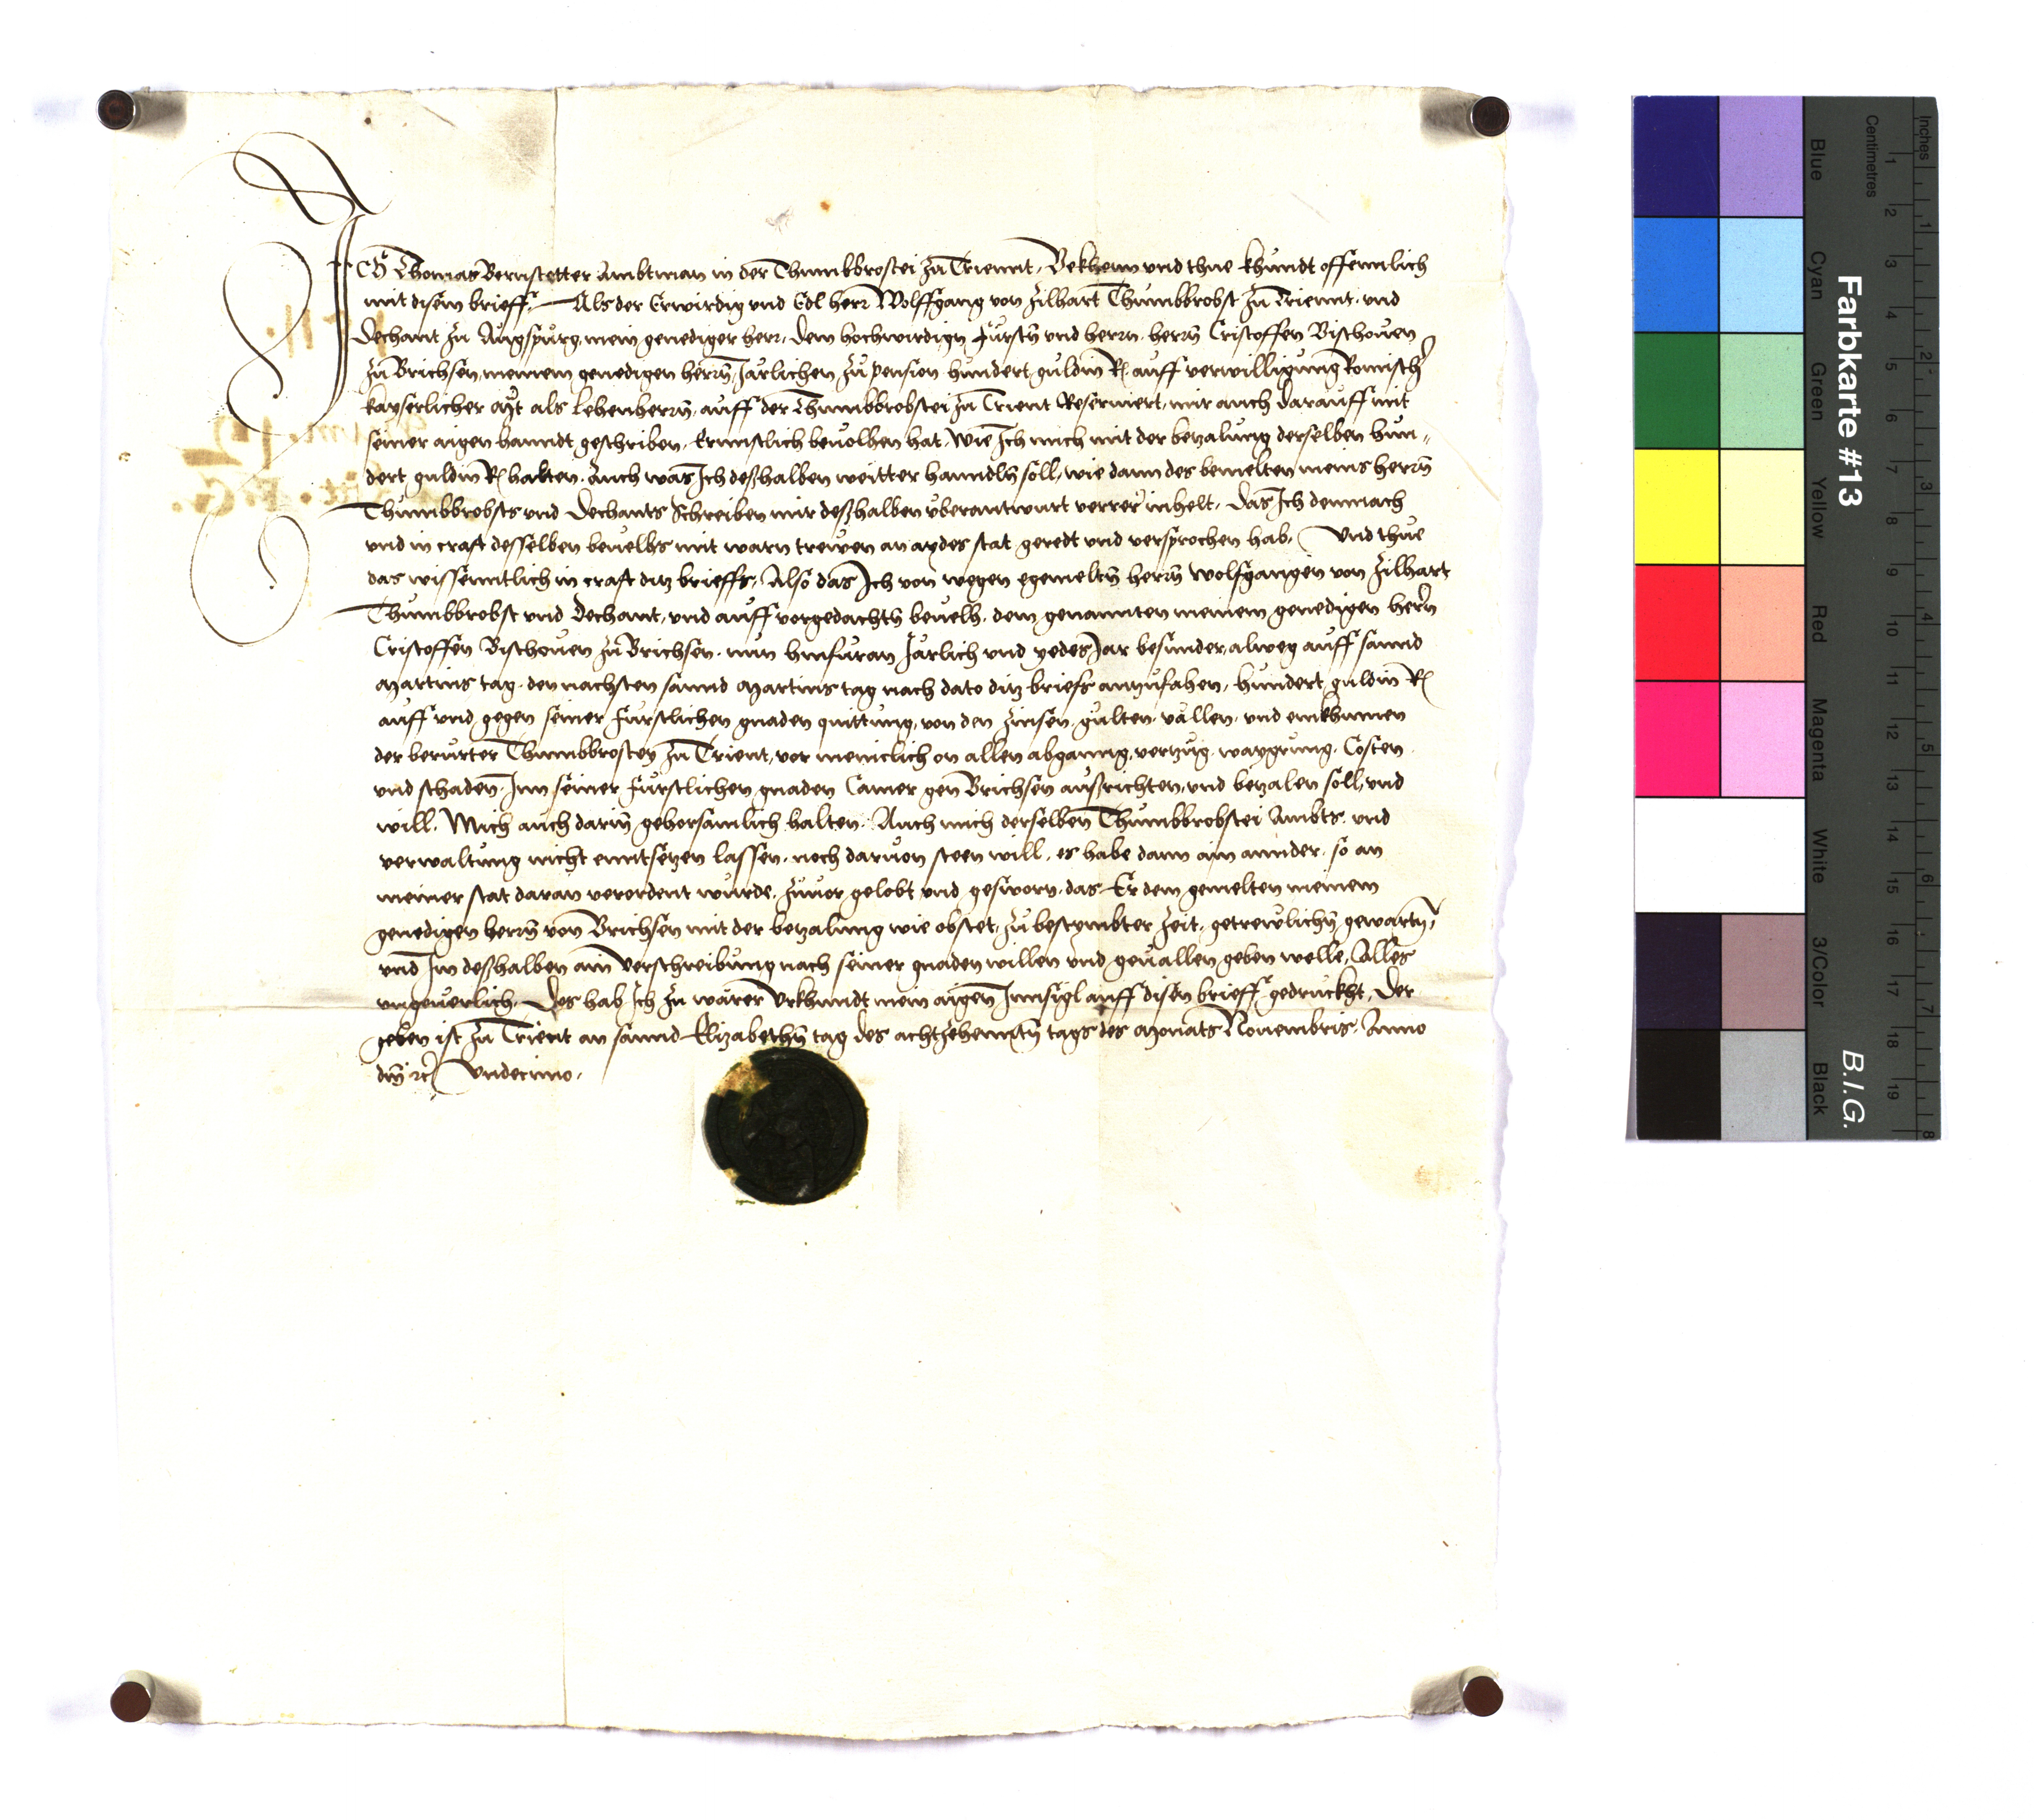 ICH Thomas Bernstetter Ambtman in der Thumbbrostei zu Triennt, Bekhenn und thue khundt offennlich
mit disem brieff. Als der Erwirdig und Edl herr Wolffgang von Zilhart Thumbbrobst zu Triennt. und
Dechant zu Augspurg mein genediger herr. dem hochwirdign Fürstn und herrn. herrn Cristoffen Bischouen
zu Brichsen, meinem genedigen herrn, Jarlichen zu pension hundert guldin R auff verwilligung Romischer
kayserlicher Mt als lehenherrn, auff der Thumbbrobstei zu Trient Reserviert, mir auch darauff mit
seiner aigen hanndt geschriben. Ernnstlich beuolhen hat. Wie Ich mich mit der betzalung derselben hun„
dert guldin R halten. Auch was Ich deßhalben weitter hanndln soll, wie dann des bemelten meins herrn
Thumbbrobsts und Dechants Schreiben mir deßhalben uberantwurt verrer inhelt. Das Ich demnach
und in craft desselben beuelhs mit warn trewen an aydes stat geredt und versprochen hab. Und thue
das wissenntlich in craft ditz brieffs. Also das Ich von wegen egemeltn herrn Wolfgangen von Zilhart
Thumbbrobst und Dechant, und auff vorgedachtn beuelh. dem genannten meinem genedigen herrn
Cristoffen Bischouen zu Brichsen. nun hinfuran Jarlich und yedes Jar besunder, alweg auff sannd
Martins tag. den nachsten sannd Martins tag nach dato ditz briefs anzufahen, hundert guldin R
auff und gegen seiner Furstlichen gnaden quittung, von den Zinsen. gulten. vällen. und einkhumen
der berurter Thumbbrostey zu Trient, vor meniclich on allen abganng, vertzug. waygrung. Costen
und schaden. Inn seiner Furstlichen gnaden Camer gen Brichsen ausrichten, und betzalen soll, und
will. Mich auch darin gehorsamlich halten. Auch mich derselben Thumbbrobstei Ambts. und
verwaltung nicht enntsetzen lassen. noch daruon steen will. es habe dann ain annder. so an
meiner stat daran verordent wurde. zuuor gelobt und gesworn. das Er dem gemelten meinem
genedigen herrn von Brichsen mit der betzalung wie obstet, zu bestymbter Zeit. getreulichn gewartn,
und Im deßhalben ain Verschreibung nach seiner gnaden willen und geuallen geben welle. Alles
ungeuerlich. Des hab Ich zu warer Urkhundt mein aigen Innsigl auff disen brieff gedruckht. Der
geben ist zu Trient an sannd Elizabethn tag des achtzehenntn tags des Monats Nouembris. Anno
dm rc Undecimo.
Farbkarte #13
B.I.G.
Inches
Centimetres
1 2 3 4 5 6 7 8 9 10 11 12 13 14 15 16 17 18 19
1 2 3 4 5 6 7 8
Blue
Cyan
Green
Yellow
Red
Magenta
White
3/Color
Black